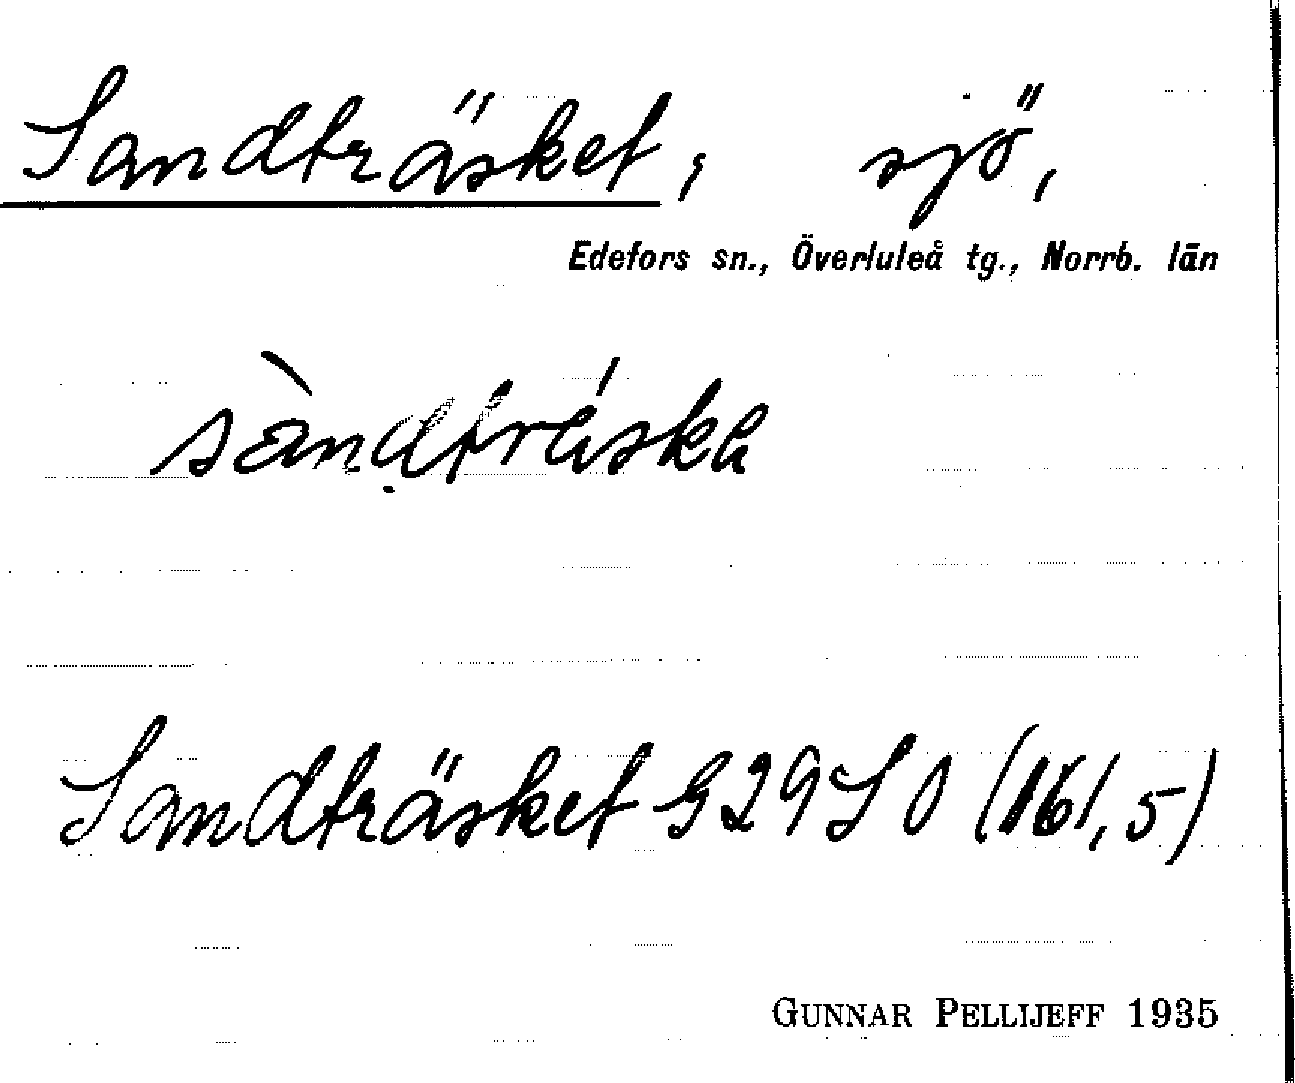 Sandträsket, sjö,
Edefors sn., Överluleå tg., Norrb. län
Sandträsket G29SO (161,5)
GUNNAR PELLIJEFF 1935